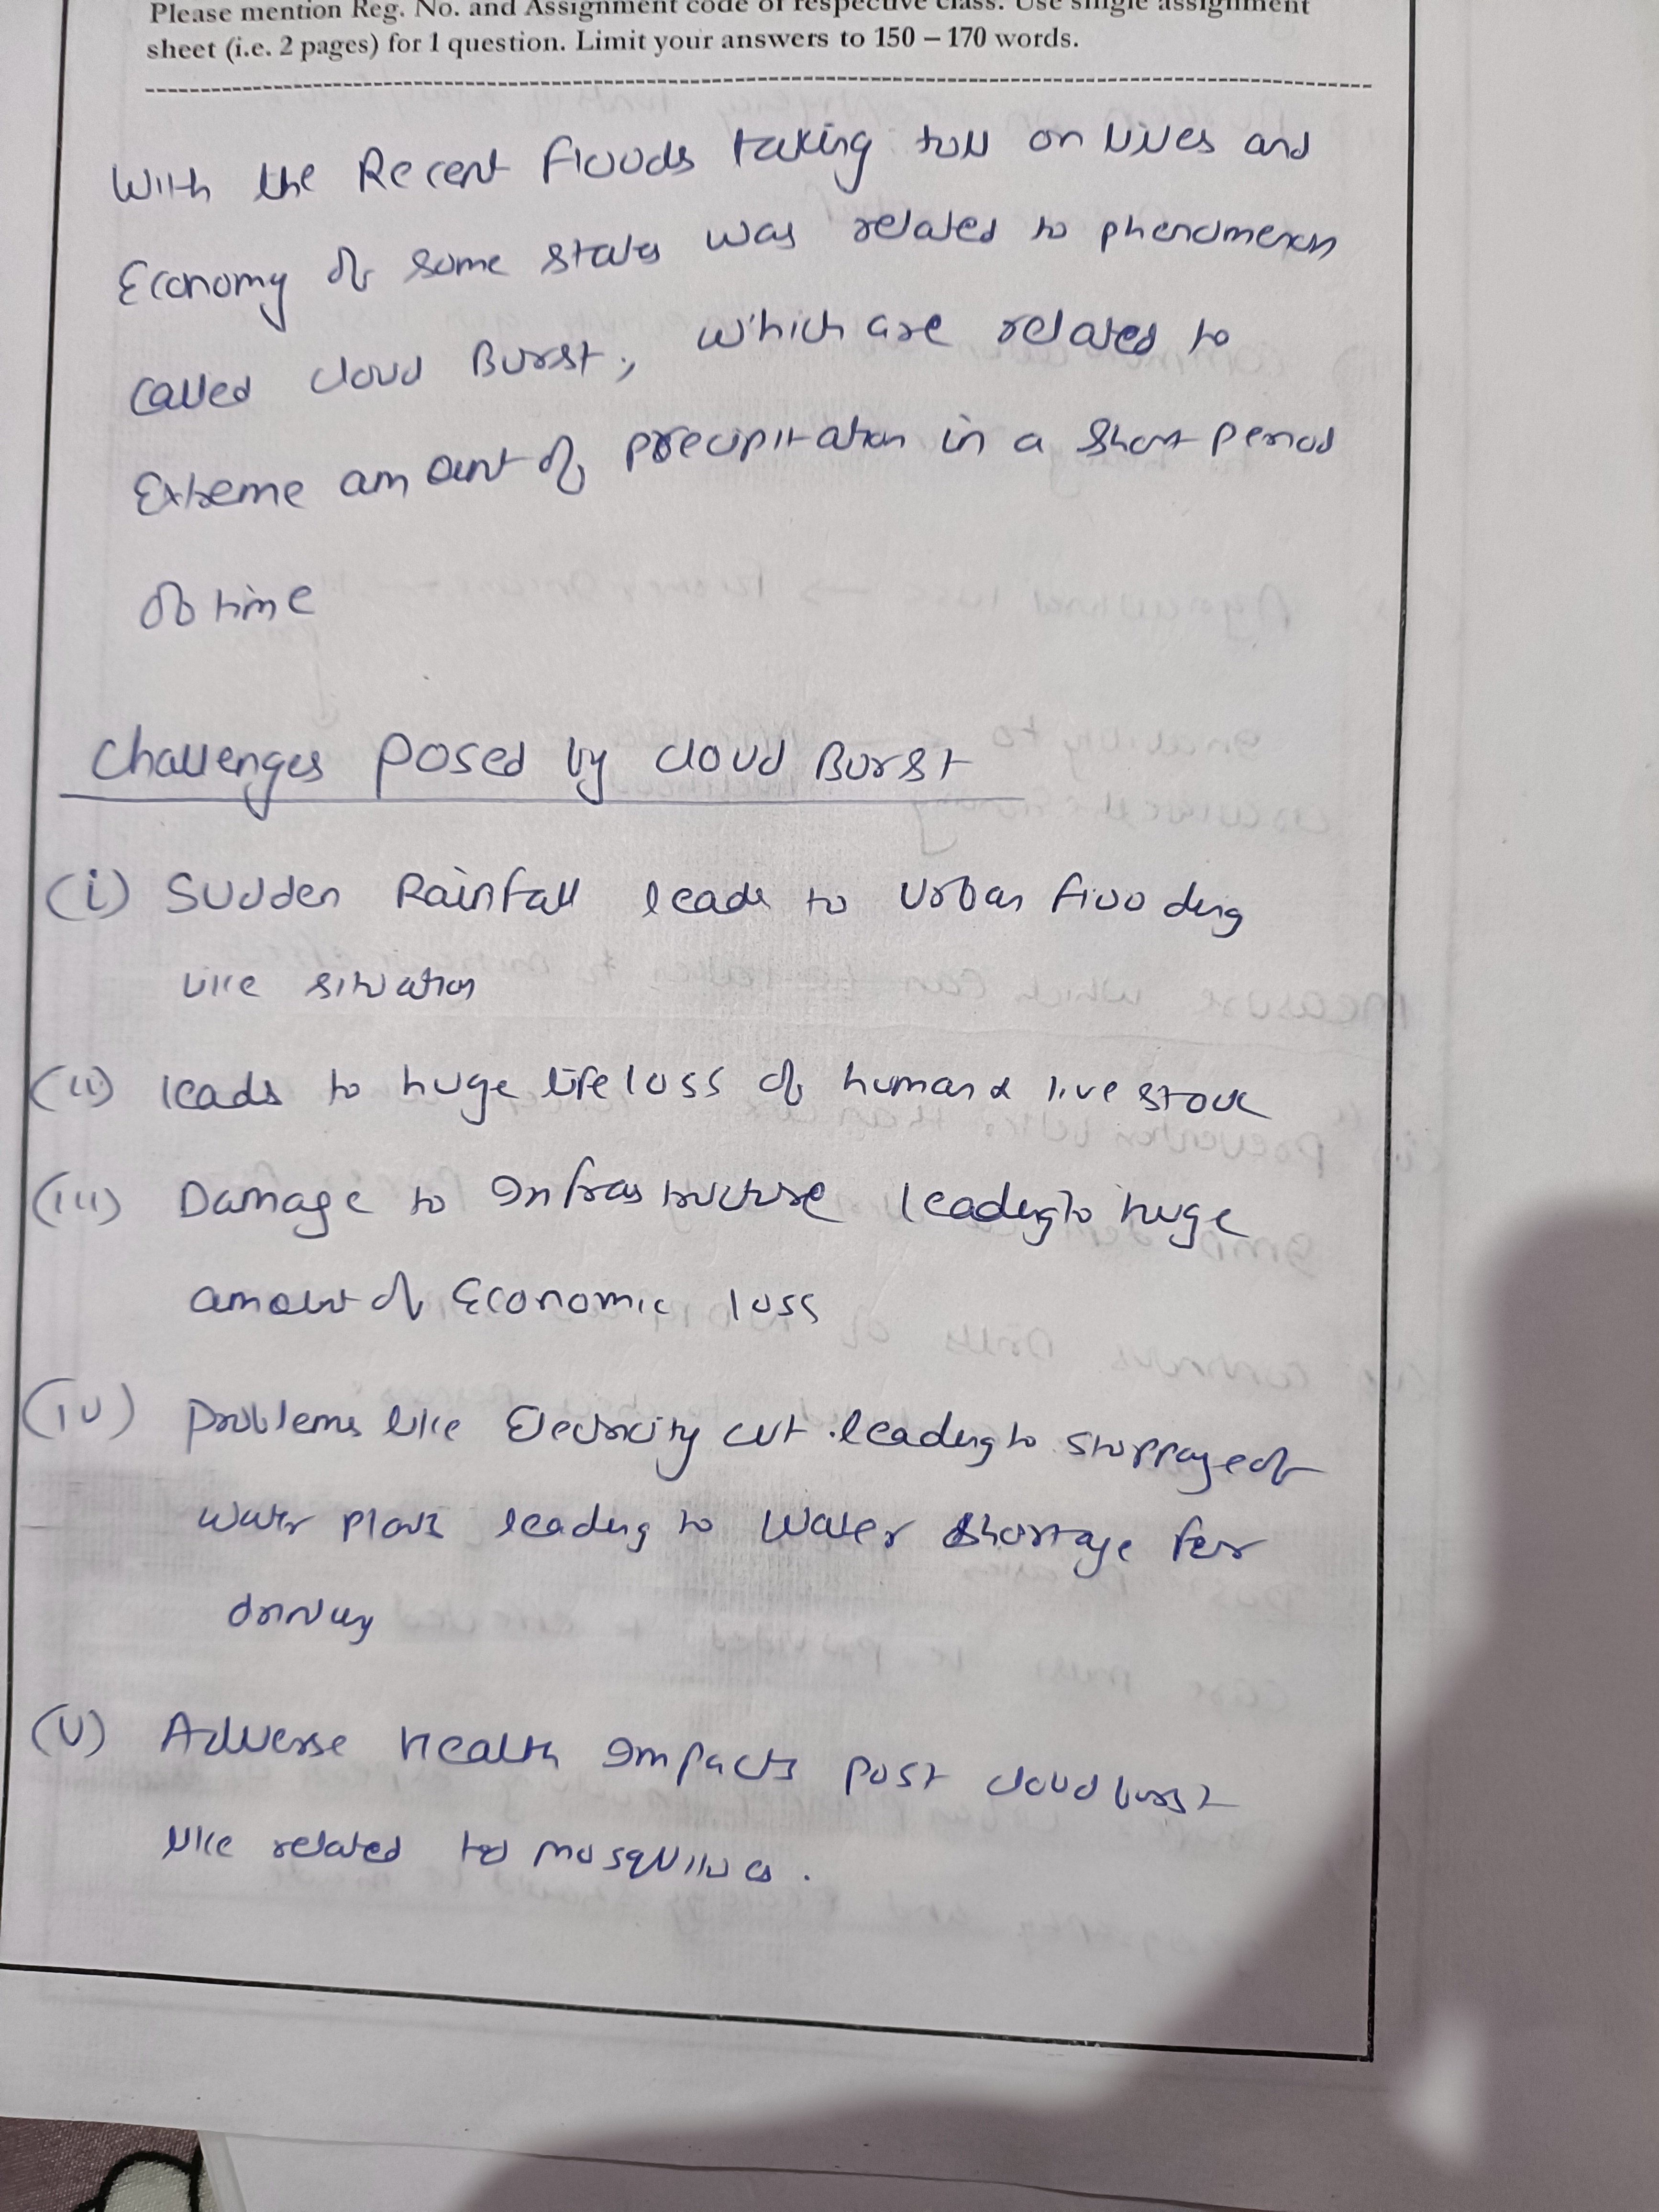 Please mention Reg. No. and Assignment code of respective class. Use single assignment
sheet (i.e. 2 pages) for 1 question. Limit your answers to 150 – 170 words.
With the Recent floods taking toll on lives and
Economy of some states was related to phenomenon
called cloud Burst, which are related to
Extreme amount of precipitation in a short period
of time
Challenges posed by cloud Burst
(i) Sudden Rainfall leads to Urban flooding
like situation
(ii) leads to huge life loss of human & live stock
(iii) Damage to Infrastructure leading to huge
amount of Economic loss
(iv) Problems like Electricity cut leading to stoppage of
water plants leading to Water shortage for
drinking
(v) Adverse Health Impacts post cloud burst
like related to mosquitoes.